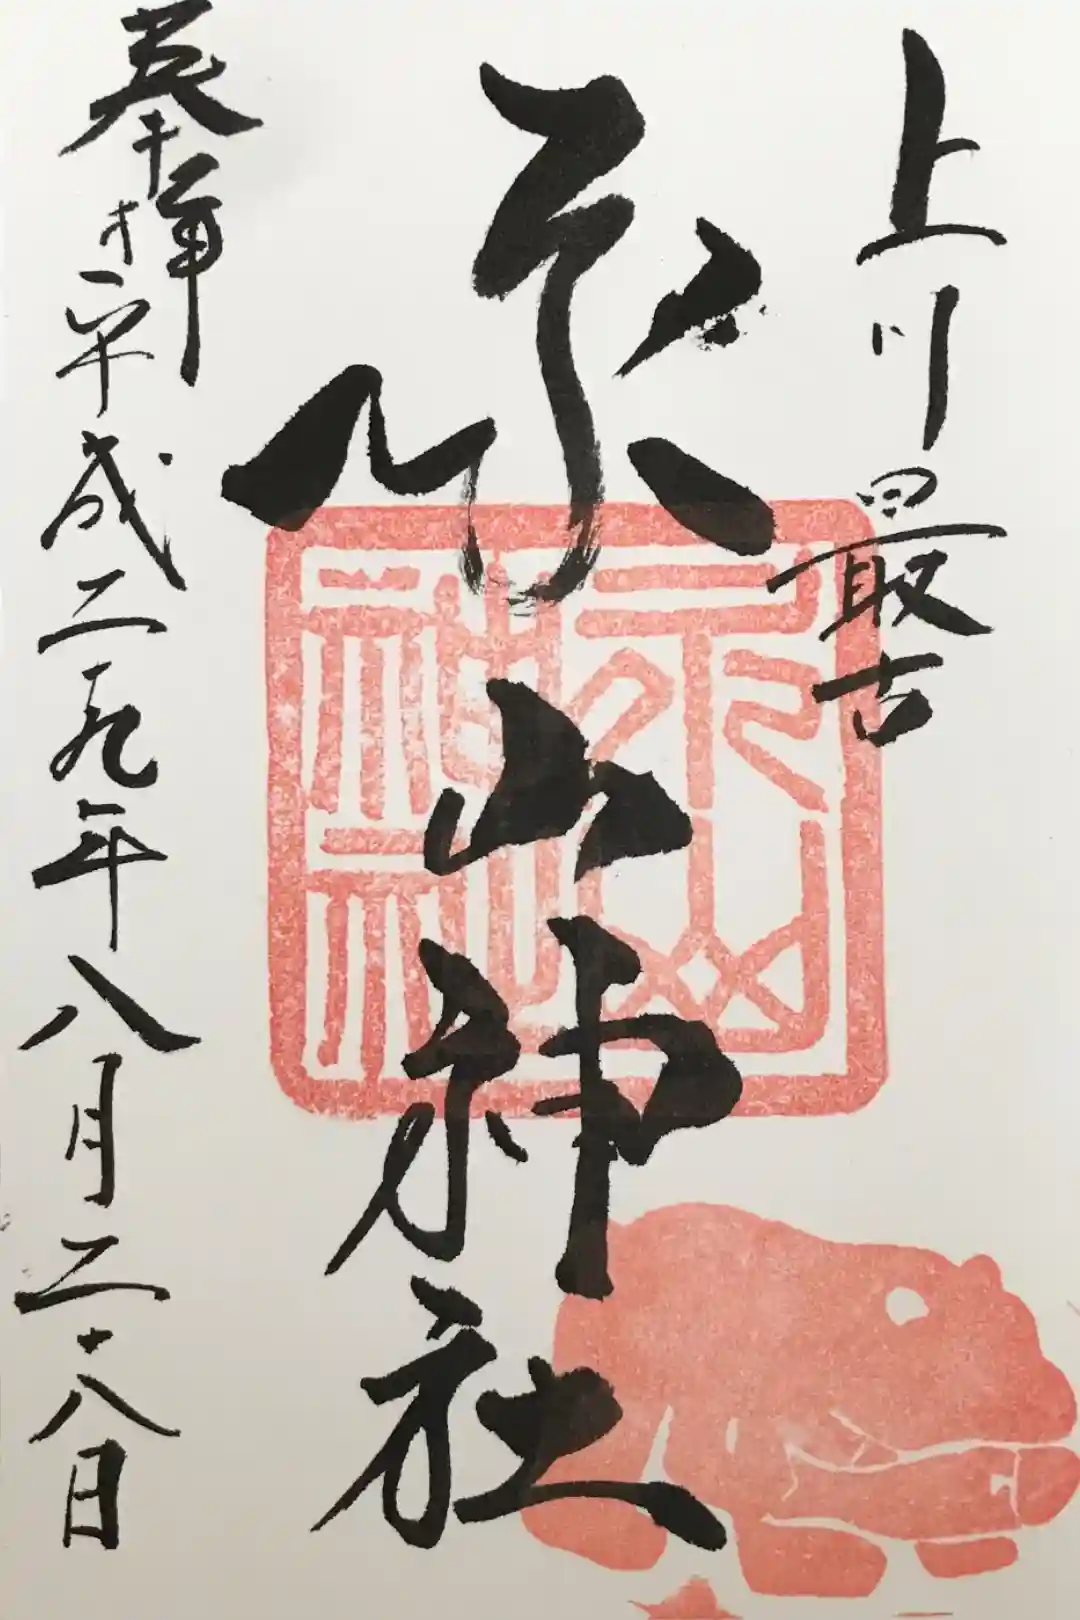 上川最古
永山神社
奉拝 平成二九年八月二十八日
永山
神社